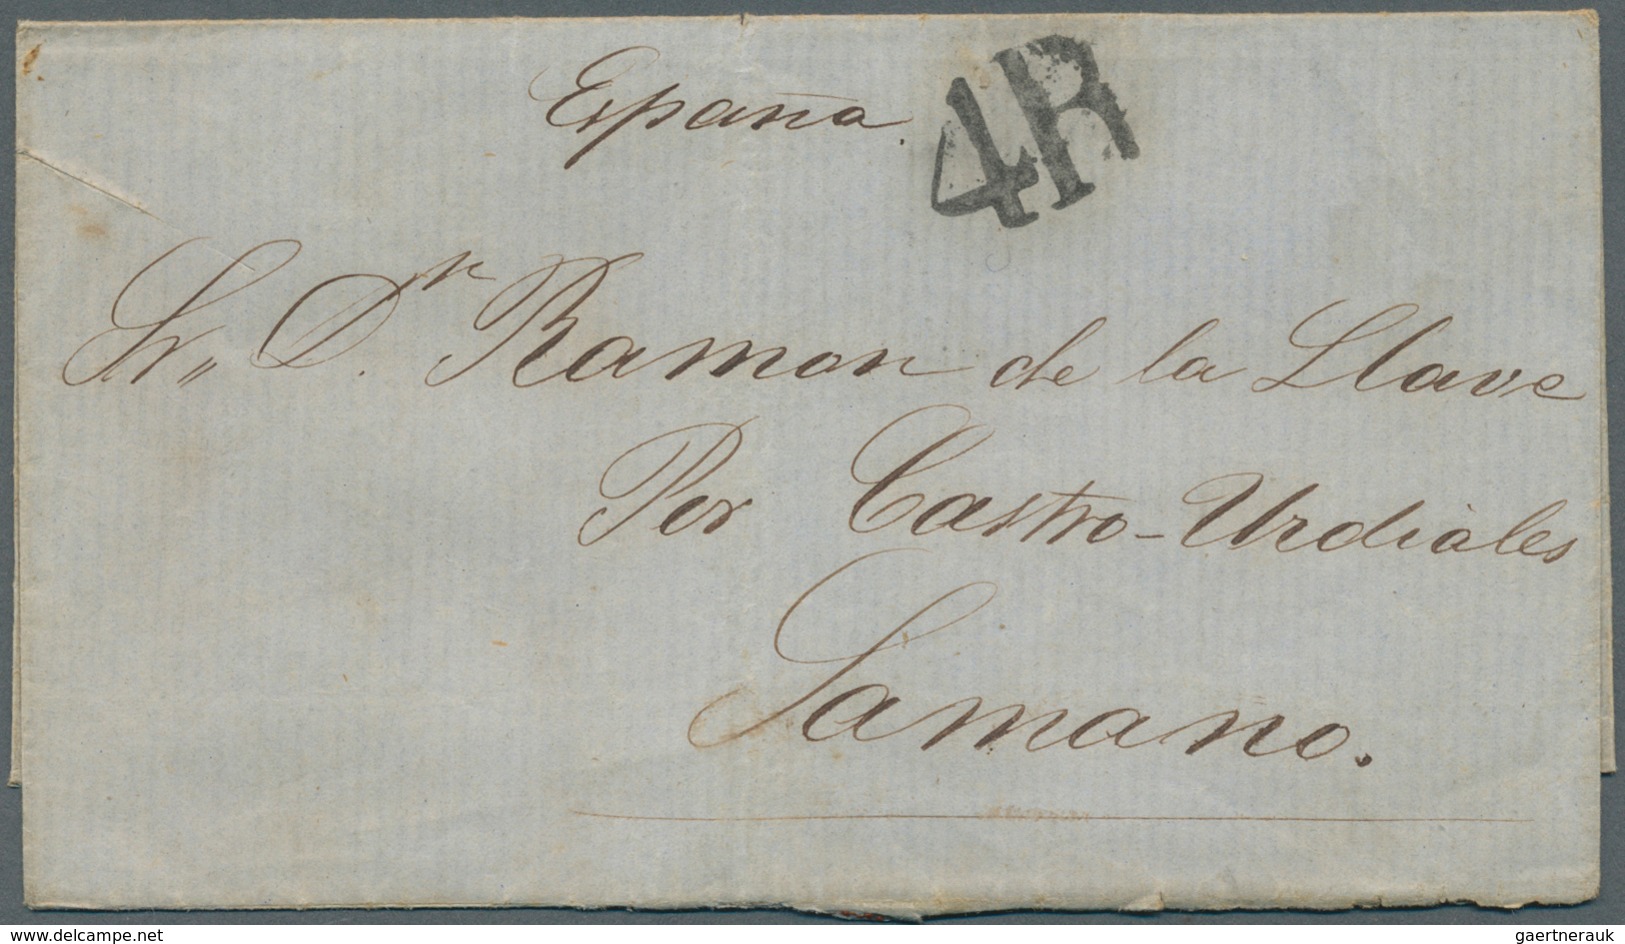 España.
4R
Sr,, Dr Ramon de la Llave
Por Castro-Urdiales
Samano.
www.delcampe.net
gaertnerauk